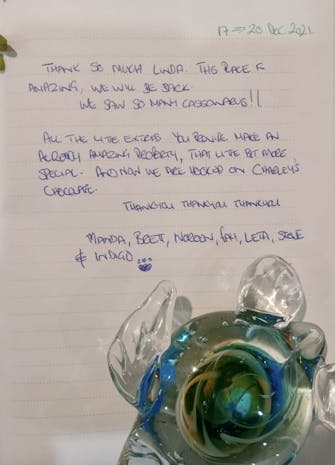 17 ⇒ 20 Dec 2021.
THANK SO MUCH LINDA. THIS PLACE IS
AMAZING, WE WILL BE BACK.
WE SAW SO MANY CASSOWARYS!!
ALL THE LITTLE EXTRAS YOU PROVIDE MAKE AN
ALREADY AMAZING PROPERTY, THAT LITTLE BIT MORE
SPECIAL. AND NOW WE ARE HOOKED ON CHARLEY'S
CHOCOLATE.
THANKYOU THANKYOU THANKYOU
MANDA, BRETT, NOREEN, IAN, LETA, STEVE
& INDIGO